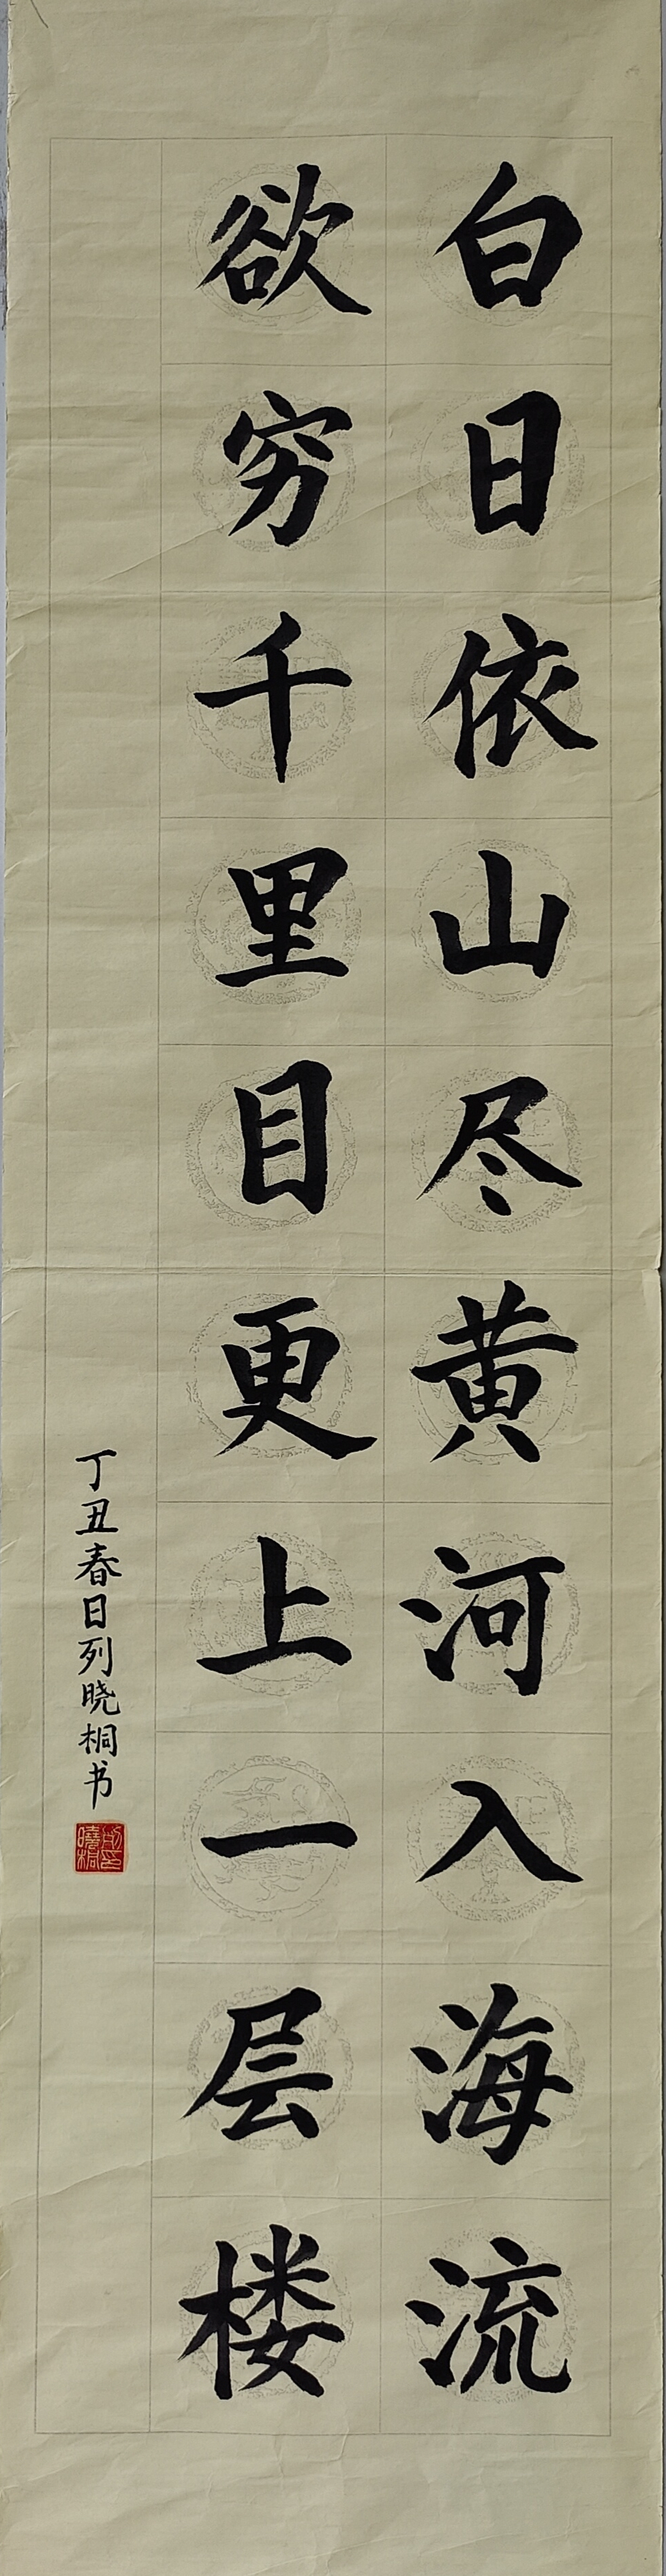 白日依山尽黄河入海流
欲穷千里目更上一层楼
丁丑春日列晓桐书